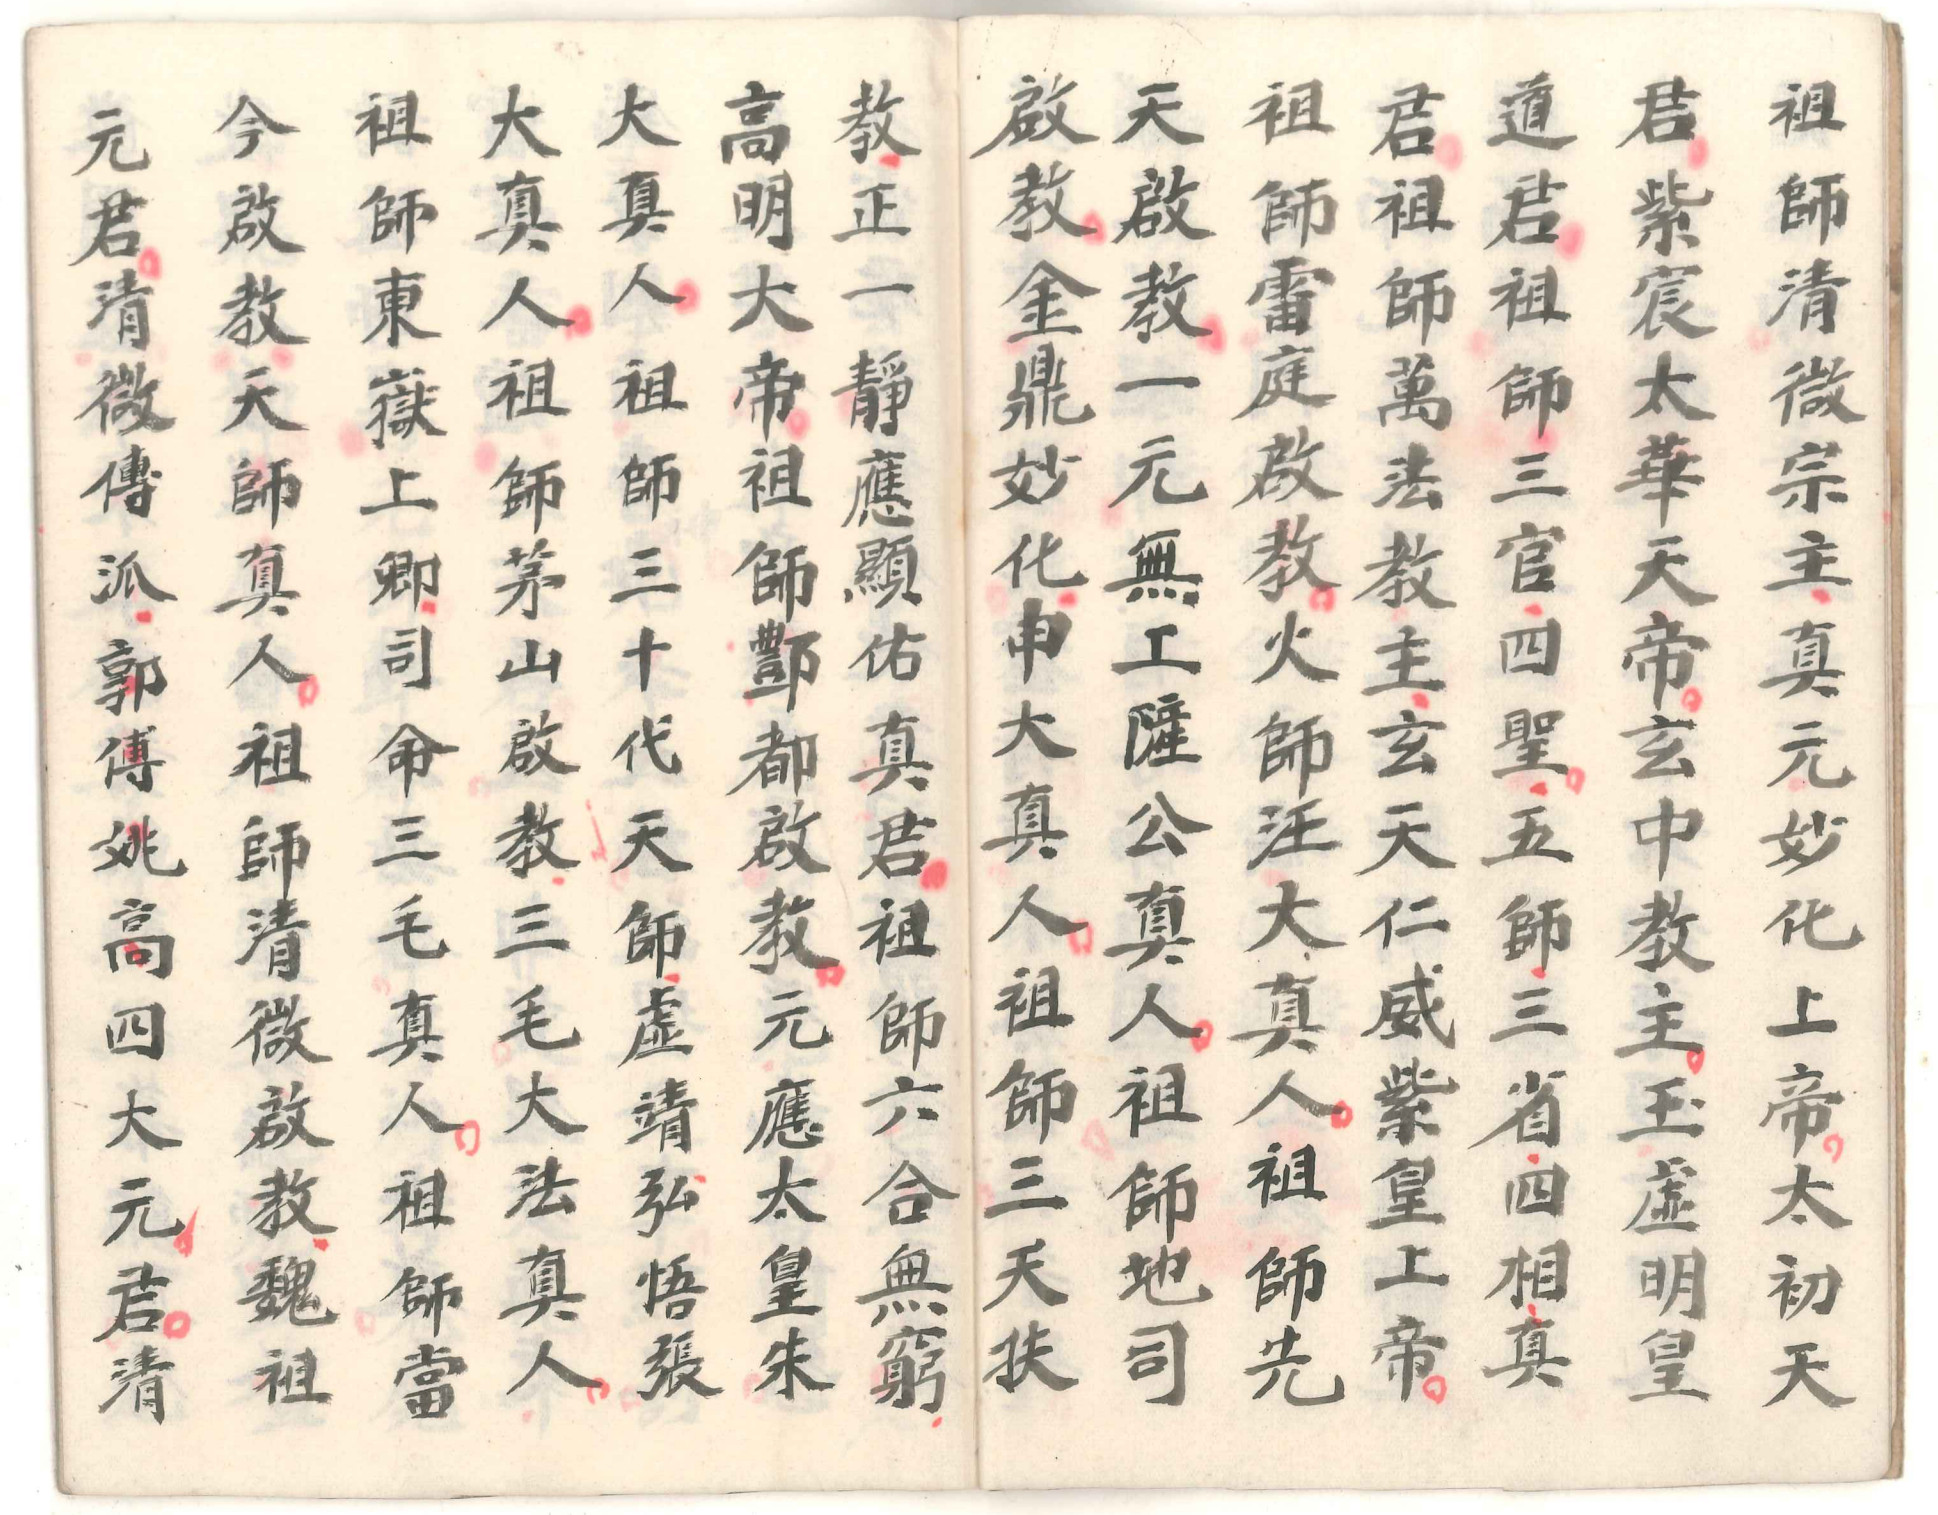 祖師清微宗主真元妙化上帝太初天
君紫宸太華天帝玄中教主玉虛明皇
道君祖師三官四聖五師三省四相真
君祖師萬法教主玄天仁威紫皇上帝
祖師雷庭啟教火師汪大真人祖師先
天啟教一元無工薩公真人祖師地司
啟教金鼎妙化申大真人祖師三天扶
教正一靜應顯佑真君祖師六合無窮
高明大帝祖師酆都啟教元應太皇朱
大真人祖師三十代天師虛靖弘悟張
大真人祖師茅山啟教三毛大法真人
祖師東嶽上卿司命三毛真人祖師當
今啟教天師真人祖師清微啟教魏祖
元君清微傳派郭傅姚高四大元君清